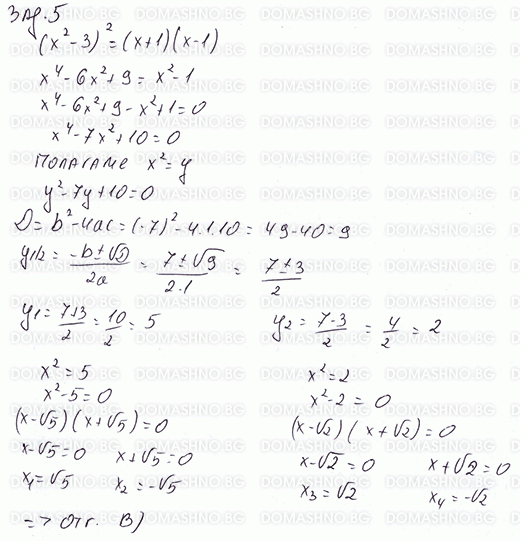 Зад. 5
(x² - 3)² = (x+1)(x-1)
x⁴ - 6x² + 9 = x² - 1
x⁴ - 6x² + 9 - x² + 1 = 0
x⁴ - 7x² + 10 = 0
Полагаме x² = y
y² - 7y + 10 = 0
D = b² - 4ac = (-7)² - 4.1.10 = 49 - 40 = 9
y1/2 = (-b ± √D)/2a = (7 ± √9)/2.1 = (7 ± 3)/2
y₁ = (7+3)/2 = 10/2 = 5    y₂ = (7-3)/2 = 4/2 = 2
x² = 5    x² = 2
x² - 5 = 0    x² - 2 = 0
(x - √5)(x + √5) = 0    (x - √2)(x + √2) = 0
x - √5 = 0    x + √5 = 0    x - √2 = 0    x + √2 = 0
x₁ = √5    x₂ = -√5    x₃ = √2    x₄ = -√2
=> Отг. В)
DOMASHNO.BG